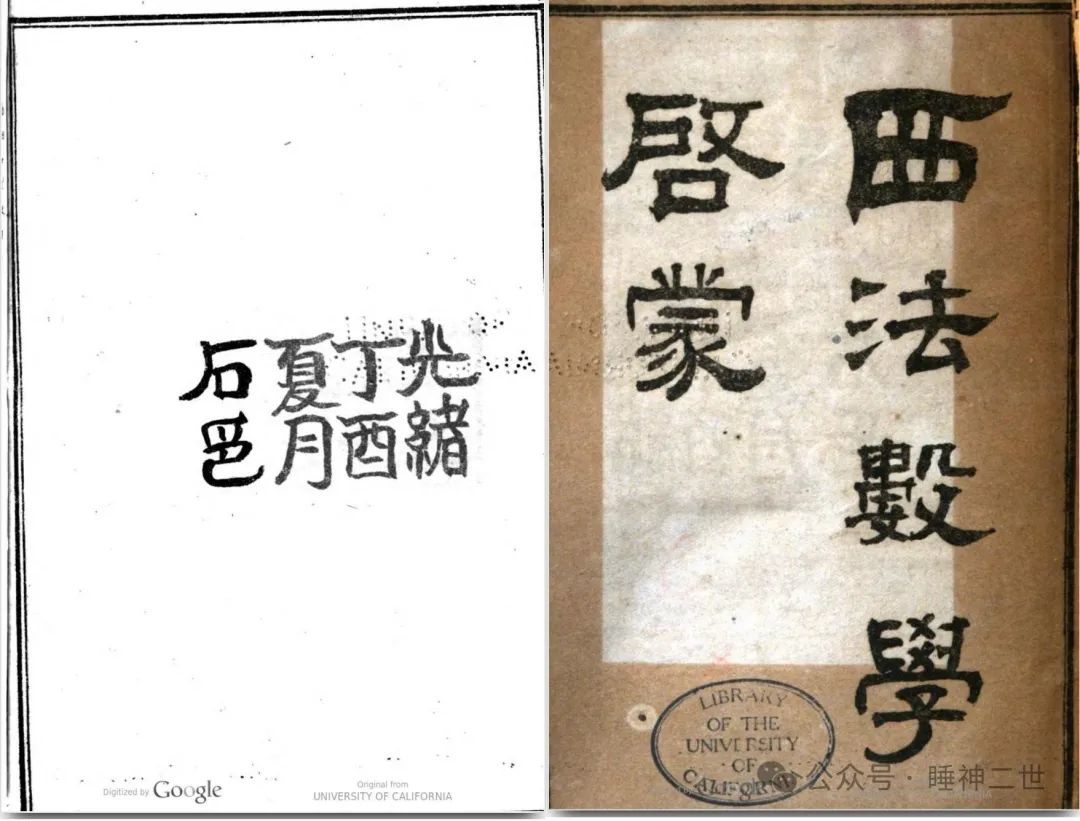 西法數學
啓蒙
光緒
丁酉
夏月
石邑
LIBRARY
OF THE
UNIVERSITY
OF
CALIFORNIA
公众号 · 睡神二世
Digitized by Google
Original from
UNIVERSITY OF CALIFORNIA